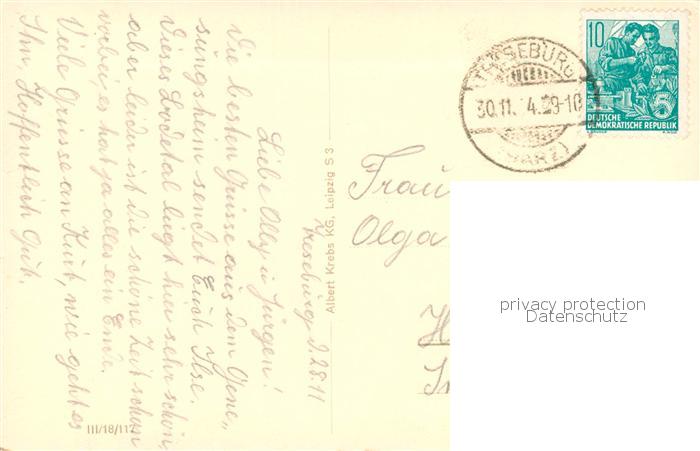 Treseburg, d. 28.11
Liebe Olly u Jürgen!
Die besten Grüsse aus dem Gene„
sungsheim sendet Euch Ilse.
Dieses Bodetal liegt hier sehr schön,
aber leider ist die schöne Zeit schon
vorbei, es hat ja alles ein Ende.
Viele Grüsse an Kurt, wie geht es
Ihm, Hoffentlich Gut.
III/18/117
Albert Krebs KG, Leipzig S 3
TRESEBURG
30.11. 4.29-10
(HARZ)
10
5
DEUTSCHE
DEMOKRATISCHE REPUBLIK
Frau
Olga
H
privacy protection
Datenschutz